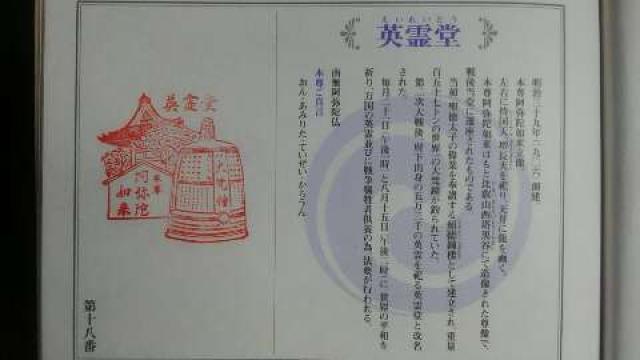 えいれいどう
英霊堂
明治三十九年(一九〇六)創建
本尊阿弥陀如来立像。
左右に持国天、増長天を祀り、天井に龍を画く。
本尊阿弥陀如来はもと比叡山西塔黒谷にて造像された尊像で、
戦後当堂に遷座されたものである
当初、聖徳太子の偉業を奉讃する頌徳鐘楼として建立され、重量
百五十七トンの世界一の大梵鐘が釣られていた。
第二次大戦後、府下出身の五万三千の英霊を祀る英霊堂と改名
された。
毎月二十一日(午後一時)と八月十五日(午後二時)に、世界の平和を
祈り、万国の英霊並びに戦争犠牲者供養の為、法要が行われる。
南無阿弥陀仏
本尊ご真言
おん・あみりた・ていぜい・からうん
英霊堂
本尊
阿弥陀
如来
第十八番